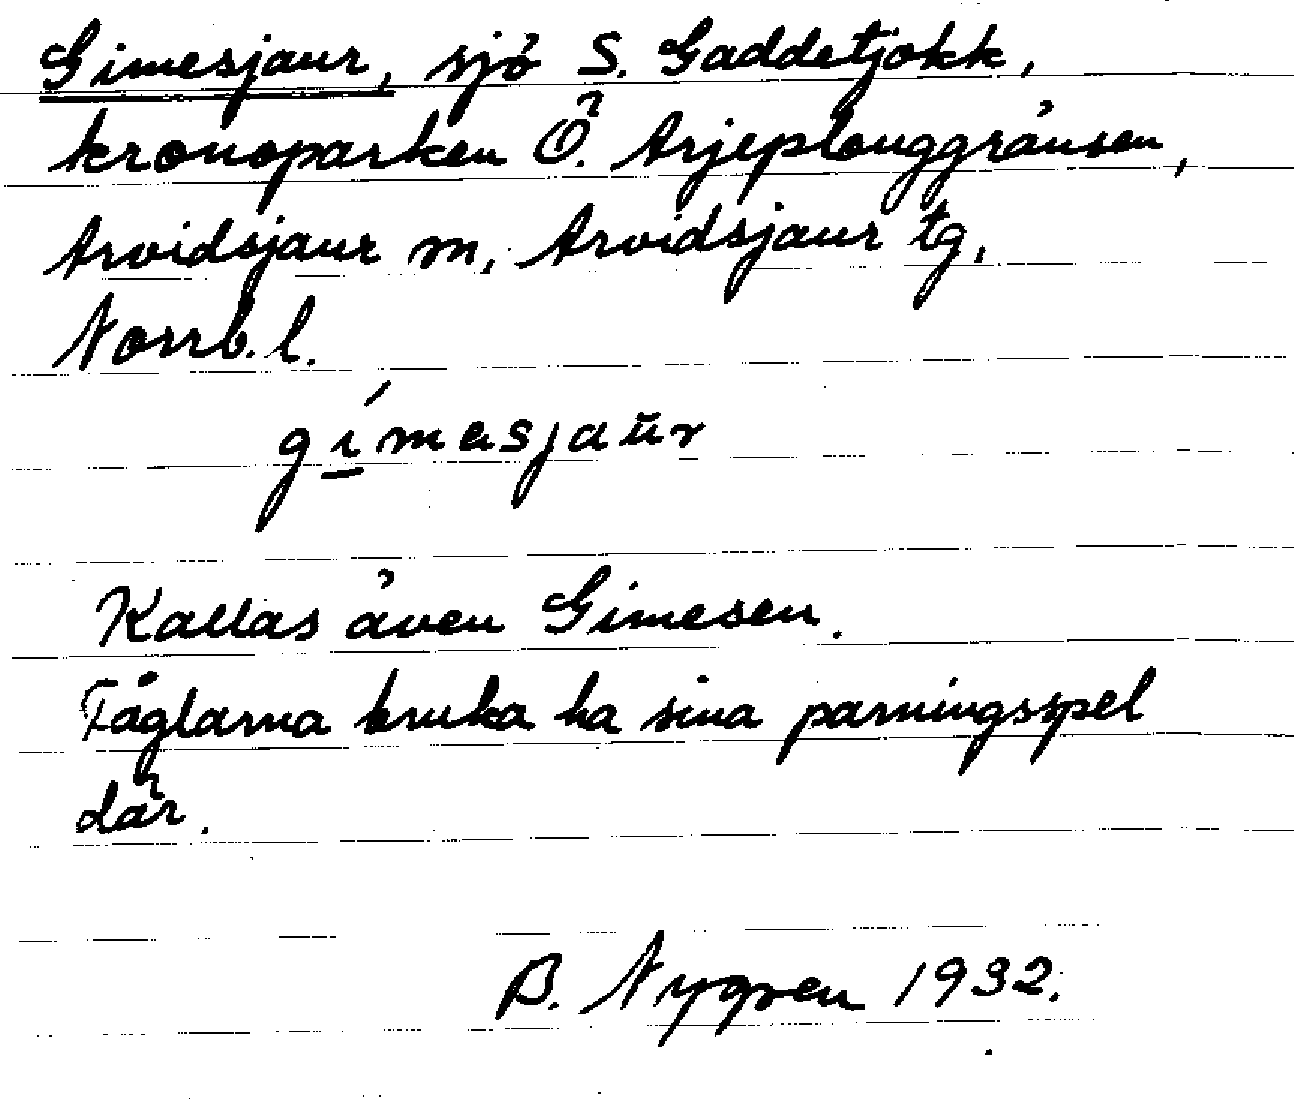 Gimesjaur, sjö S. Gaddetjåkk,
kronoparken Ö. Arjeplouggränsen,
Arvidsjaur m., Arvidsjaur tg,
Norrb. l.
gí̱mɐsjaŭr
Kallas även Gimesen.
Fåglarna bruka ha sina parningsspel
där.
B. Nygren 1932.